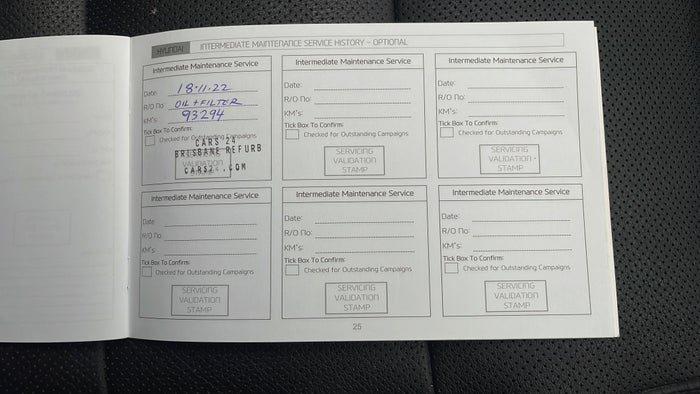 HYUNDAI INTERMEDIATE MAINTENANCE SERVICE HISTORY - OPTIONAL
Intermediate Maintenance Service
Date: 18-11-22
R/O No: OIL + FILTER
KM's: 93294
Tick Box To Confirm:
Checked for Outstanding Campaigns
CARS 24
BRISBANE REFURB
SERVICING
VALIDATION
STAMP
Intermediate Maintenance Service
Date:
R/O No:
KM's:
Tick Box To Confirm:
Checked for Outstanding Campaigns
SERVICING
VALIDATION
STAMP
Intermediate Maintenance Service
Date:
R/O No:
KM's:
Tick Box To Confirm:
Checked for Outstanding Campaigns
SERVICING
VALIDATION
STAMP
Intermediate Maintenance Service
Date:
R/O No:
KM's:
Tick Box To Confirm:
Checked for Outstanding Campaigns
SERVICING
VALIDATION
STAMP
Intermediate Maintenance Service
Date:
R/O No:
KM's:
Tick Box To Confirm:
Checked for Outstanding Campaigns
SERVICING
VALIDATION
STAMP
Intermediate Maintenance Service
Date:
R/O No:
KM's:
Tick Box To Confirm:
Checked for Outstanding Campaigns
SERVICING
VALIDATION
STAMP
25